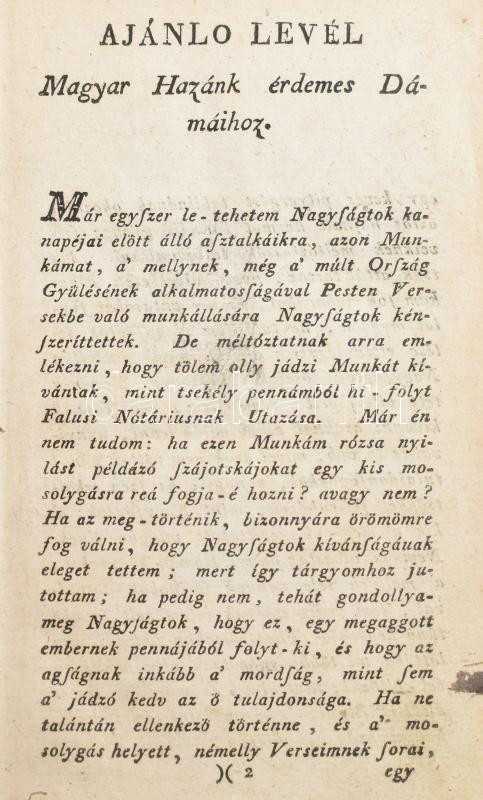 AJÁNLO LEVÉL
Magyar Hazánk érdemes Dá-
máihoz.
Már egyſzer le-tehetem Nagyſágtok ka-
napéjai elött álló aſztalkáikra, azon Mun-
kámat, a' mellynek, még a' múlt Orſzág
Gyülésének alkalmatosſágával Pesten Ver-
sekbe való munkállására Nagyſágtok kén-
ſzeríttettek. De méltóztatnak arra em-
lékezni, hogy tölem olly jádzi Munkát kí-
vántak, mint tsekély pennámból ki-folyt
Falusi Nótáriusnak Utazása. Már én
nem tudom: ha ezen Munkám rózsa nyi-
lást példázó ſzájotskájokat egy kis mo-
solygásra reá fogja-é hozni? avagy nem?
Ha az meg-történik, bizonnyára örömömre
fog válni, hogy Nagyſágtok kívánſágáuak
eleget tettem; mert így tárgyomhoz ju-
tottam; ha pedig nem, tehát gondollya-
meg Nagyſágtok, hogy ez, egy megaggott
embernek pennájából folyt-ki, és hogy az
agſágnak inkább a' mordſág, mint ſem
a' jádzó kedv az ö tulajdonsága. Ha ne
talántán ellenkezö történne, és a' mo-
solygás helyett, némelly Verseimnek ſorai,
)( 2 egy